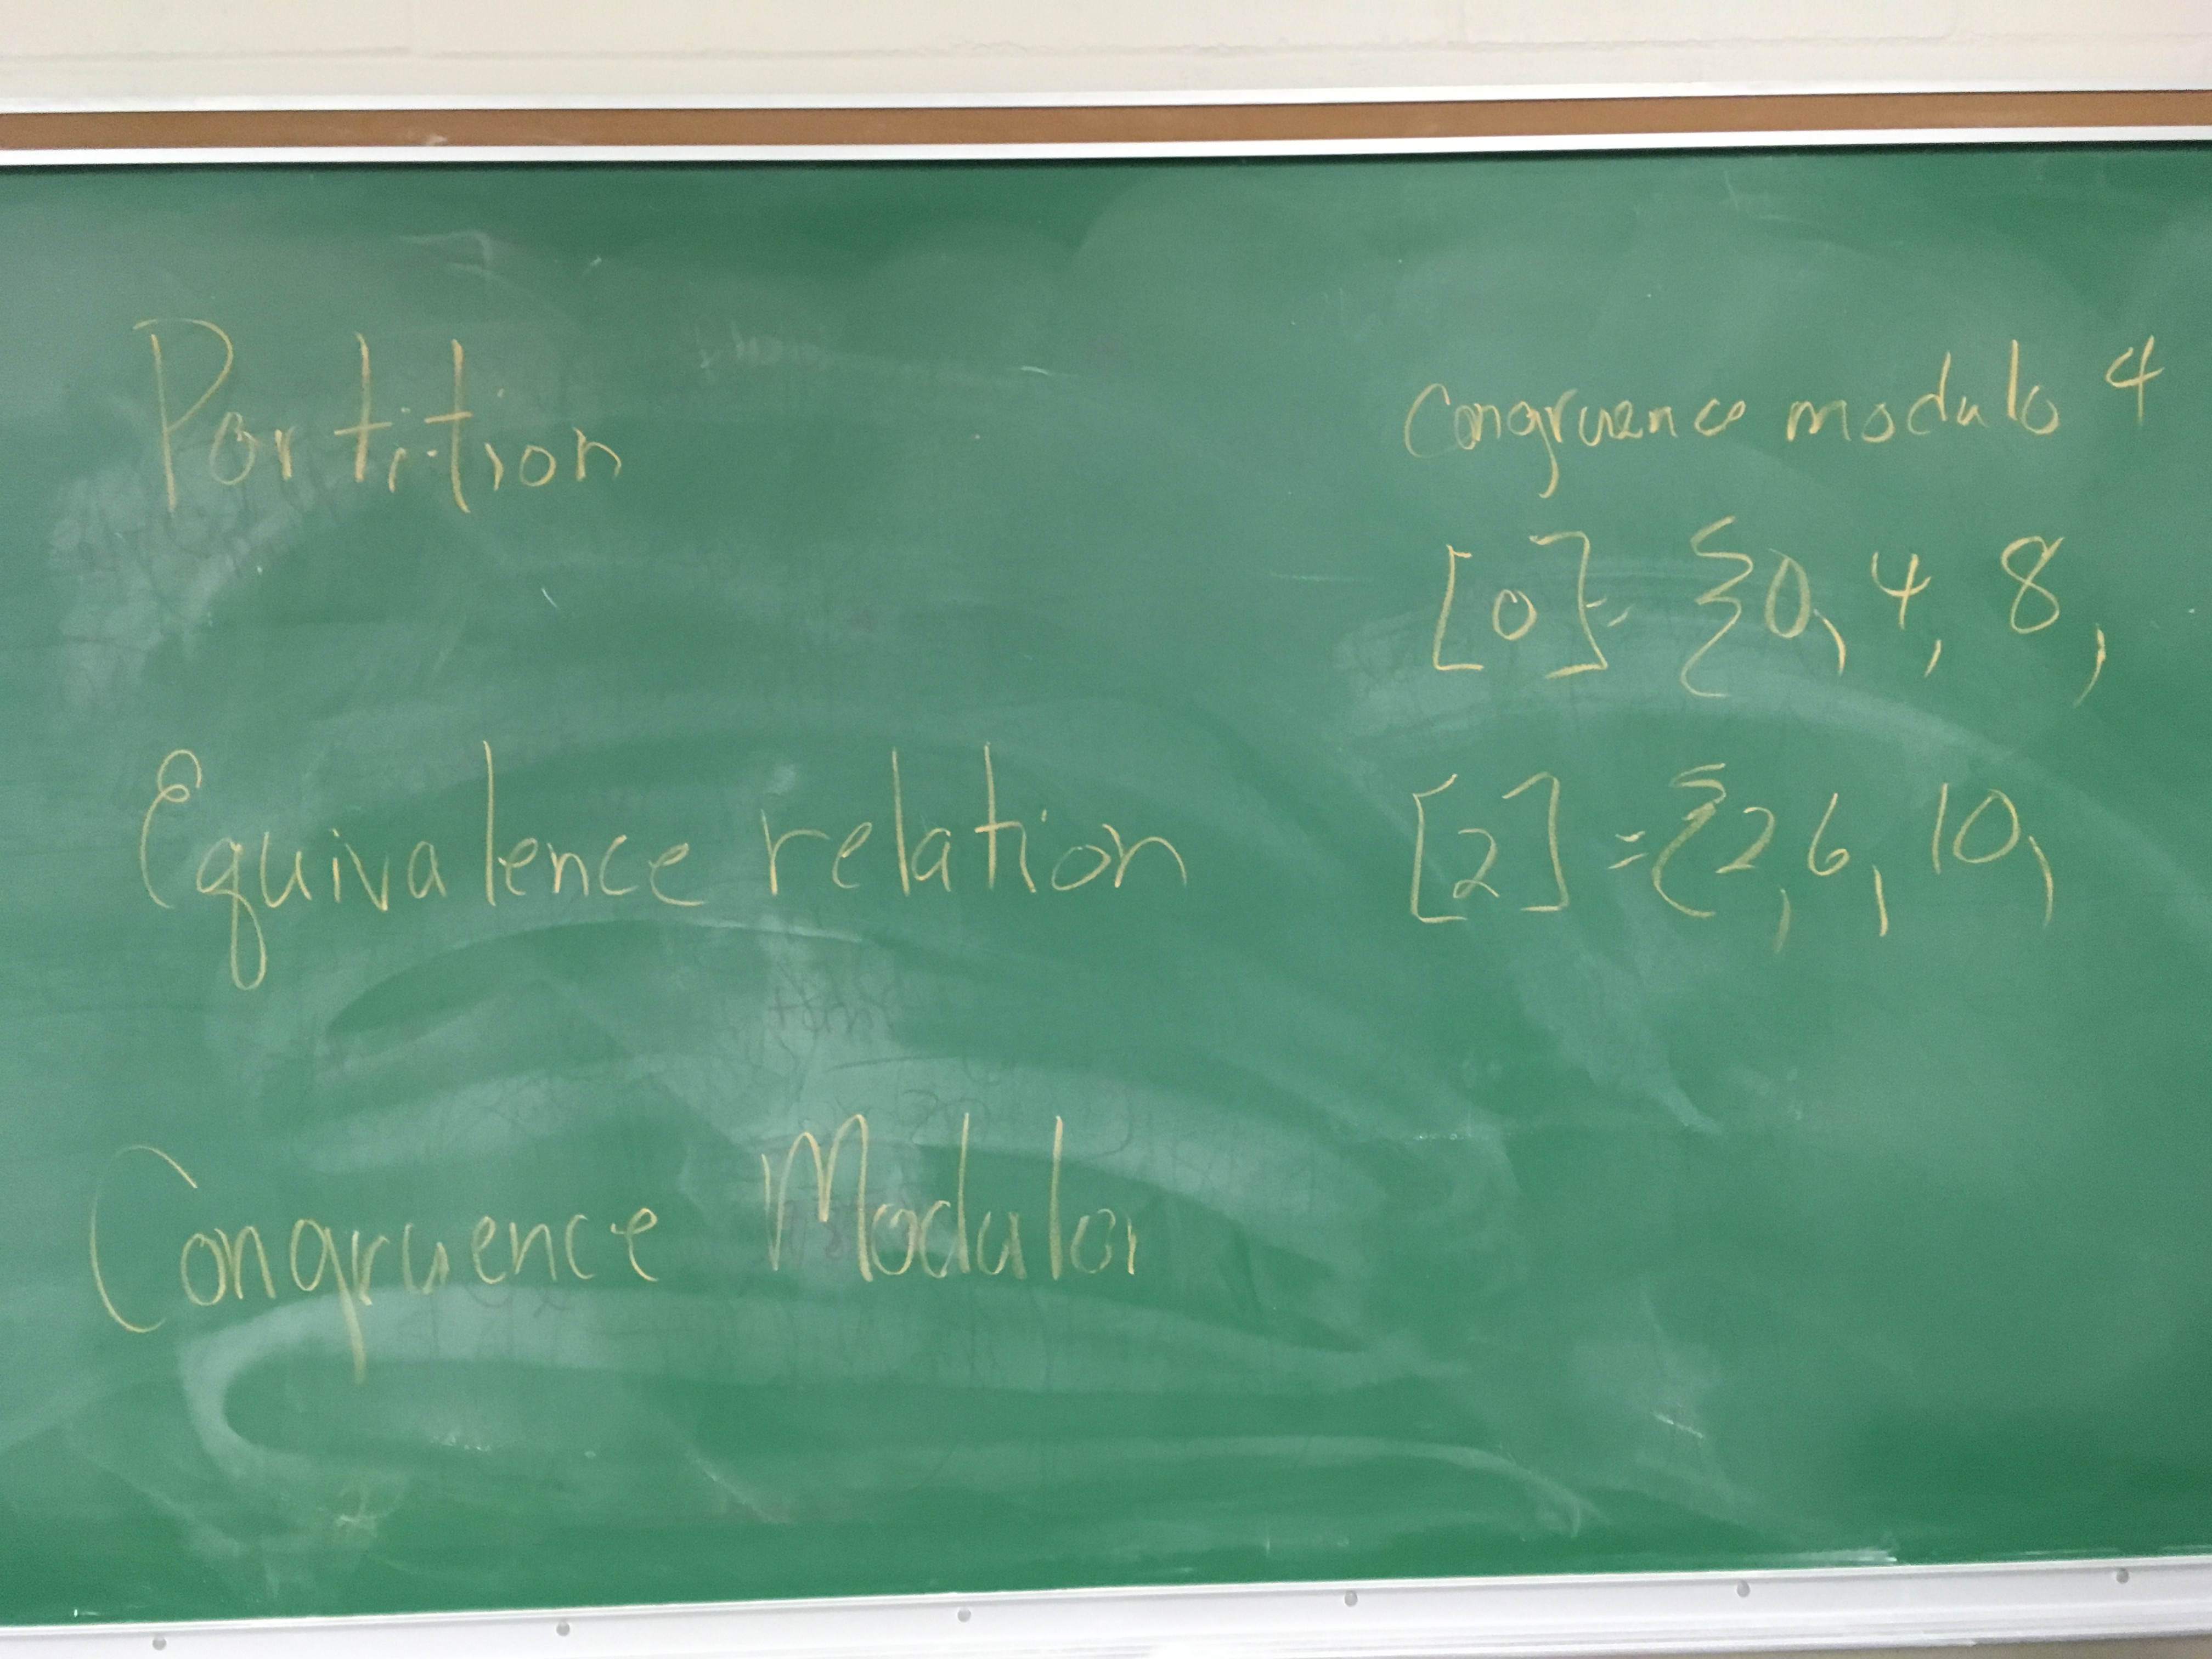 Partition
Equivalence relation
Congruence Modular
Congruence modulo 4
[0] = {0, 4, 8,
[2] = {2, 6, 10,